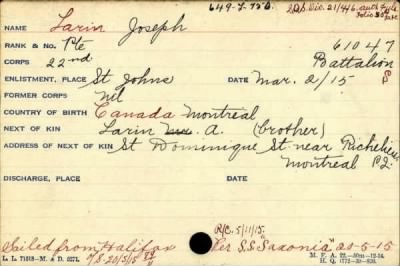 649-L-750. 20b Dis. 21/4/6. auth
NAME Larin Joseph
RANK & No. Pte 61047
CORPS 22nd Battalion
ENLISTMENT, PLACE St Johns DATE Mar. 2/15
FORMER CORPS nil
COUNTRY OF BIRTH Canada Montreal
NEXT OF KIN Larin A. (brother)
ADDRESS OF NEXT OF KIN St Dominique St. near Richelieu
Montreal P2.
DISCHARGE, PLACE DATE
R/C. 5/11/15.
Sailed from Halifax Per S.S. Saxonia" 20-5-15
L. L. 71618-M. & D. 9271. M/S. 20/5/15 M. F. A. 22.-50m-12-14.
H. Q. 1772-39-839.